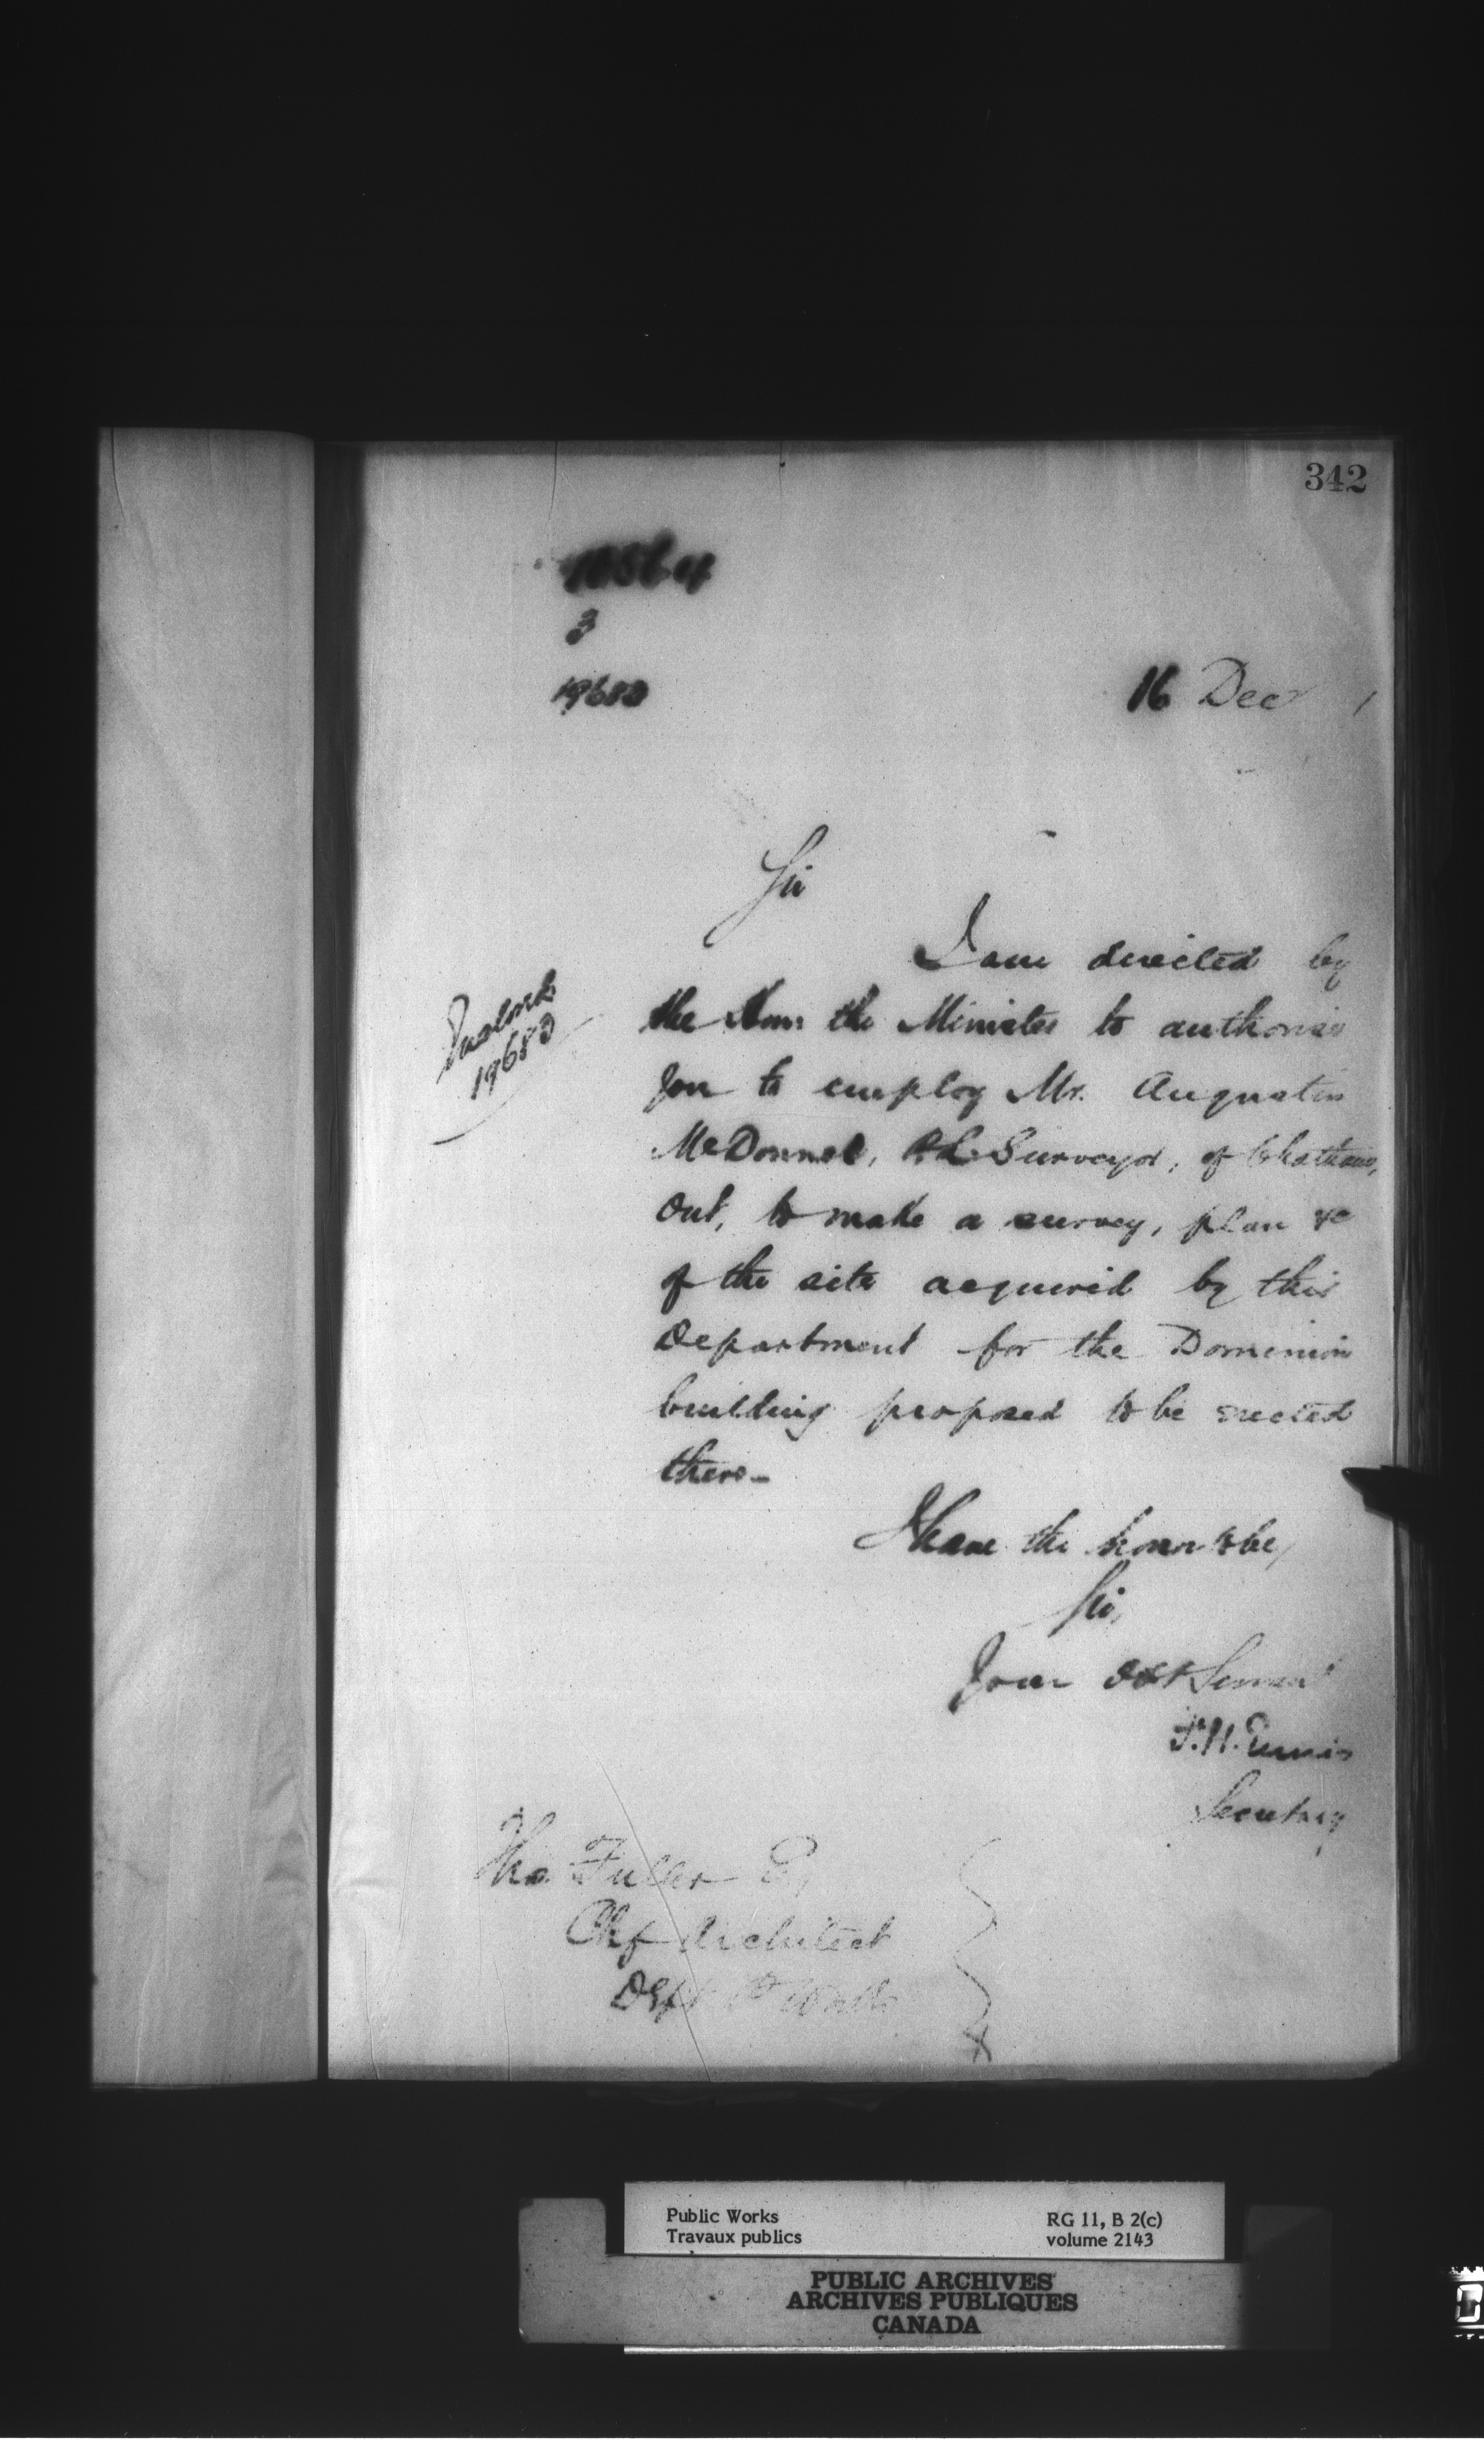 342
3
19680
16 Decr 1
Sir
I am directed by
19680
the Hon: the Minister to authorise
you to employ Mr. Augustin
McDonnel, P.L. Surveyor, of Chatham,
Ont, to make a survey, plan &c
of the site acquired by this
Department for the Dominion
building proposed to be erected
there-
I have the honor to be,
Sir,
Your Obt Servant
F. H. Ennis
Secretary
Tho. Fuller E,
Chf Architect
Dept P Works
Public Works
Travaux publics
RG 11, B 2(c)
volume 2143
PUBLIC ARCHIVES
ARCHIVES PUBLIQUES
CANADA